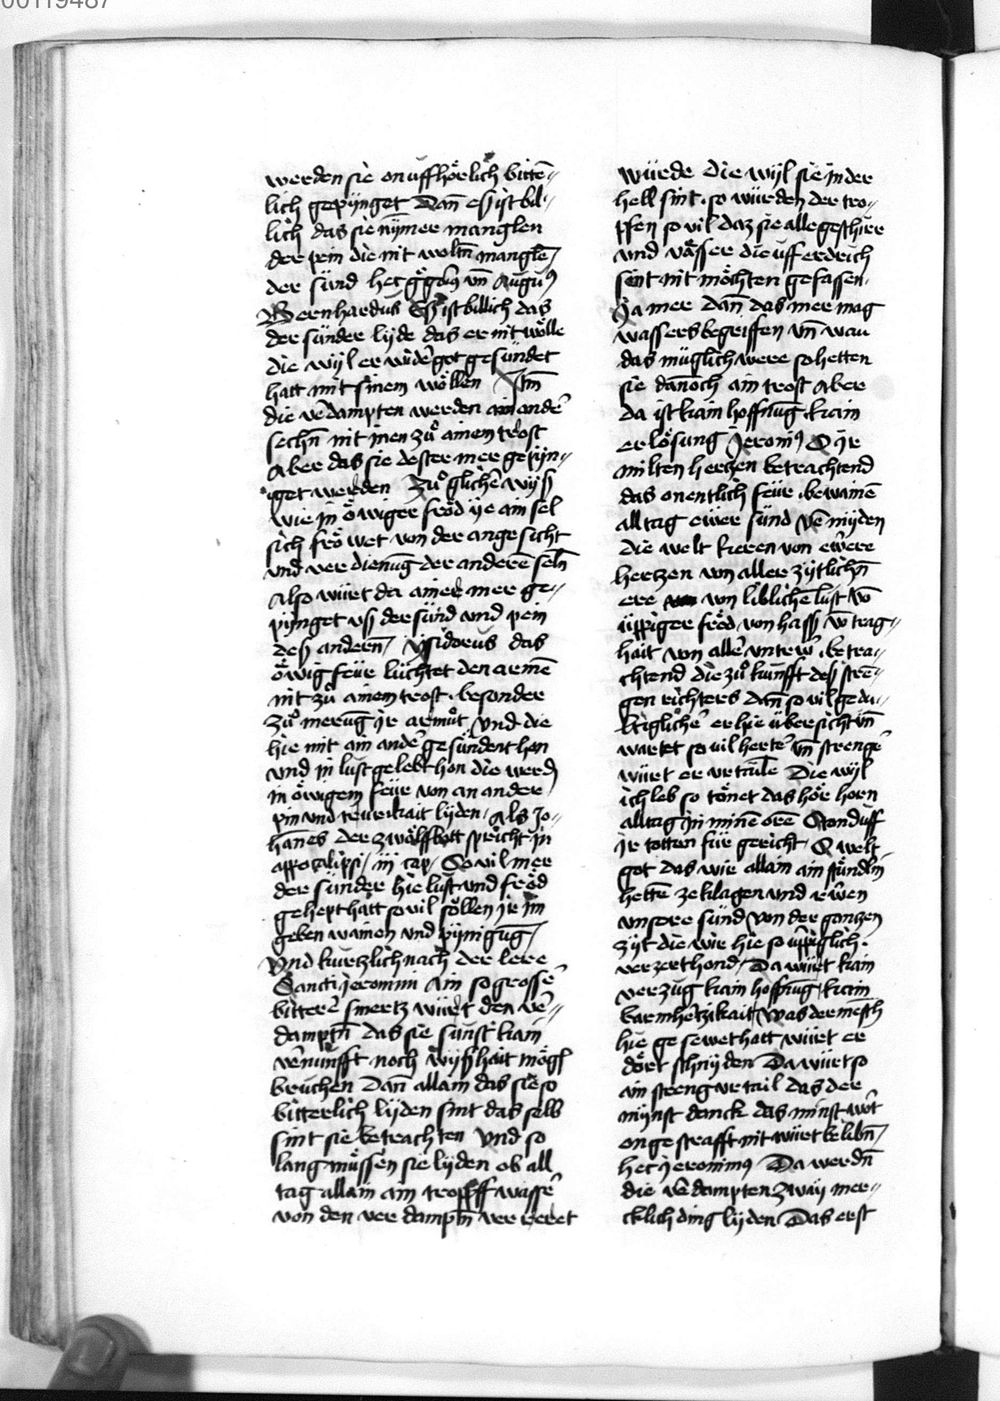 00119487
werden sie on uffhörlich bittē-
lich gepÿnget Dañ eß ist bil-
lich das sie nÿmer manglen
der pein die nit woltñ manglē
der sünd hec ggoriꝰ vñ Auguꝰ
Bernhardus Eß ist billich das
der sünder lÿde das er nit wölle
die wÿl er wider got gesündet
hatt mit sinem wöllen Jtm̄
die v̄dampten werden ain ander̄
sechn̄ nit jnen zuͦ ainem trost
Aber das sie dester mer gepÿn-
get werden Zuͦ glicher̄ wÿß
wie jn öwiger fröd ÿe ain sel
sich fröwet von der angesicht
vnd verdienūg der anderē seln̄
Also würt da ainer mer ge-
pÿnget vß der sünd vnd pein
deß anderen Ÿsidorus das
öwig feür lüchtet den armē
nit zuͦ ainem trost · besonder
zuͦ merūg jr armuͦt Vnd die
hie mit ain ander̄ gesündert hon
vnd in lust gelebt hon die werdn̄
in öwigem feür von an ander
pin vnd trurikait lÿden / Als Jo-
hañes der zwölffbott spricht in
appocalipsi / iij cap / So vil mer
der sünder hie lust vnd fröd
gehept hatt so vil söllen jr im
geben wainen vnd pÿnigūg
Vnd kurtzlich nach der lere
Sancti Jeronimi Ain so grossē
bitterer̄ smertz würt den v̄-
damptn̄ das sie sunst kain
v̄nunfft noch wÿßhait mögn̄
bruchen Dañ allain das sie so
bitterlich lÿden sint das selb
sint sie betrachten Vnd so
lang müssen sie lÿden ob all
tag allain ain tropff wasser̄
von den verdamptn̄ verreret
würde die wÿl sie in der
hell sint · so würden der tro-
pfen so vil daz sie alle geschirr
vnd väßser die uff erdrich
sint nit möchten gefassen
Ja mer dañ das mer mag
wassers begriffen vñ wan
das müglich were so hetten
sie dañoch ain trost Aber
da ist kain hoffnūg · kain
erlösung Jeroniꝰ O jr
milten hertzen betrachtend
das onentlich feür · bewainē
all tag ewer sünd V̄mÿden
die welt kieren von ewere
hertzen von aller zÿtlichn̄
ere von liblicher̄ lust vō
üppiger fröd von hass vō trag-
hait von aller̄ vntrew̄ · betra-
chtend die zuͦkunfft deß strē-
gen richters dañ so vil gedu-
ltigklicher̄ er hie übersicht vñ
wartet so vil herter̄ vñ strenger̄
würt er vrtailē Die wÿl
ich leb so tönet das hör horn
all tag jn minē orē Stond uff
jr totten für gericht / O welt
got das wir allain ain stündlin
hetten ze klagen vnd rewen
vnsere sünd von der gantzen
zÿt die wir hie so üppiglich ·
verzert hond / Da würt kain
verzug kain hoffnūg / kain
barmhertzikait / was der mēsch
hie gesewet hatt würt er
dört schnÿden Da würt so
ain streng vrtail das der
mÿnst danck das minst wort
on gestrafft nit würt belibn̄
hec jeronimꝰ Da werdn̄
die v̄dampten zwaÿ mer-
cklich ding lÿden Das erst